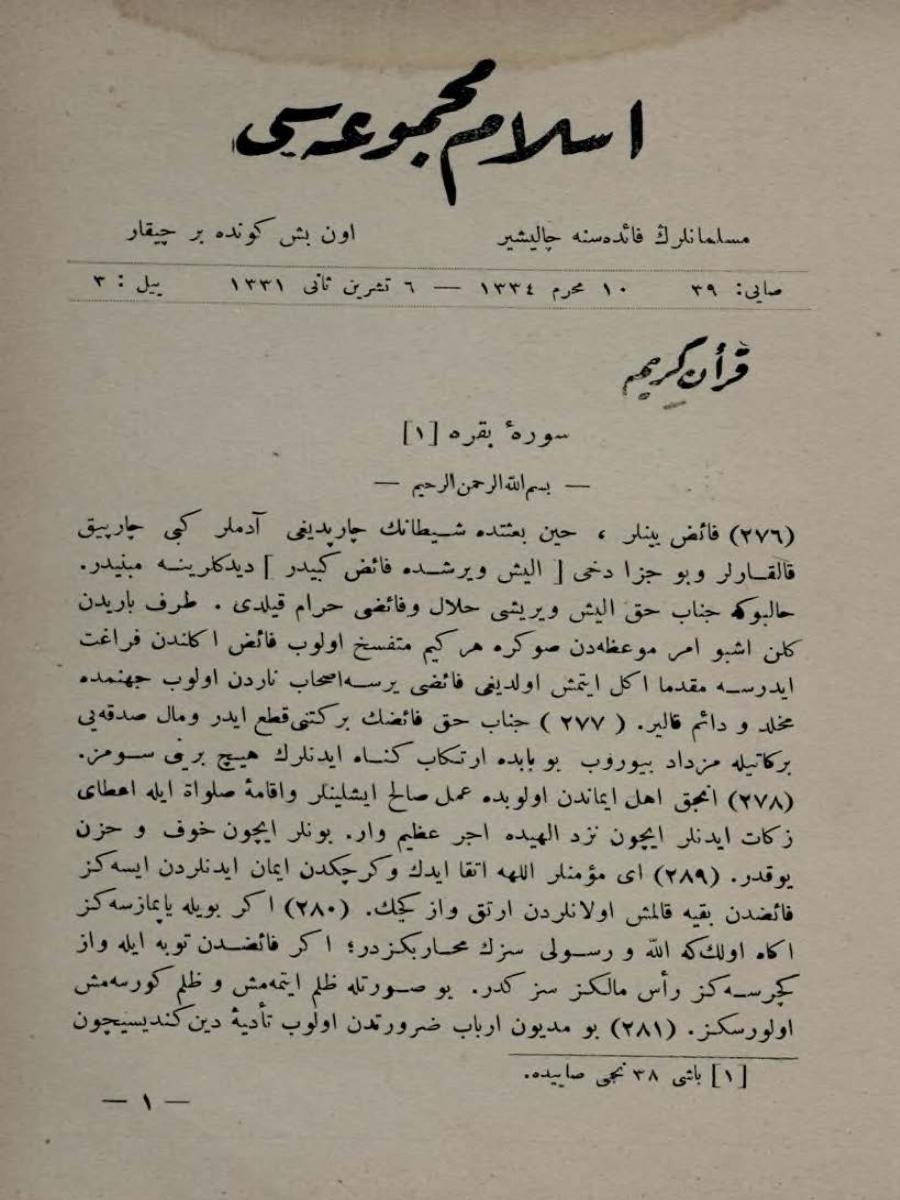 اسلام مجموعه‌سی
مسلمانلرڭ فائده‌سنه چالیشیر اون بش كونده بر چیقار
صایی: ٣٩ ١٠ محرم ١٣٣٤ — ٦ تشرین ثانی ١٣٣١ ییل : ٣
قرأن كریم
سورهٔ بقره [١]
— بسم الله الرحمن الرحیم —
(٢٧٦) فائض یینلر ، حین بعثتده شیطانك چارپدیغی آدملر كبی چارپیق
قالقارلر وبو جزا دخی [ الیش ویرشده فائض كبیدر ] دیدكلرینه مبنیدر.
حالبوكه جناب حق الیش ویریشی حلال وفائضی حرام قیلدی . طرف باریدن
كلن اشبو امر موعظه‌دن صوكره هر كیم متفسخ اولوب فائض اكلندن فراغت
ایدرسه مقدما اكل ایتمش اولدیغی فائضی یرسه اصحاب ناردن اولوب جهنمده
مخلد و دائم قالیر. ( ٢٧٧ ) جناب حق فائضك بركتنی قطع ایدر ومال صدقه‌یی
بركاتیله مزداد بیوروب بو بابده ارتكاب كناه ایدنلرك هیچ برینی سومز.
(٢٧٨) انجق اهل ایماندن اولوبده عمل صالح ایشلینلر واقامهٔ صلواة ایله اعطای
زكات ایدنلر ایچون نزد الهیده اجر عظیم وار. بونلر ایچون خوف و حزن
یوقدر. (٢٨٩) ای مؤمنلر اللهه اتقا ایدك وكرچكدن ایمان ایدنلردن ایسه‌كز
فائضدن بقیه قالمش اولانلردن ارتق واز كچك. (٢٨٠) اكر بویله یاپمازسه‌كز
اكاه اولك‌كه الله و رسولی سزك محاربكزدر؛ اكر فائضدن توبه ایله واز
كچرسه‌كز رأس مالكز سز كدر. بو صورتله ظلم ایتمه‌مش و ظلم كورمه‌مش
اولورسكز. (٢٨١) بو مدیون ارباب ضرورتدن اولوب تأدیهٔ دین كندیسیچون
[١] باشی ٣٨ نجی صاییده.
— ١ —